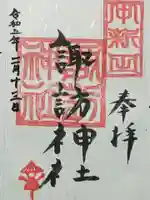 奉拝
諏訪神社
令和二年二月十二日
諏訪神社